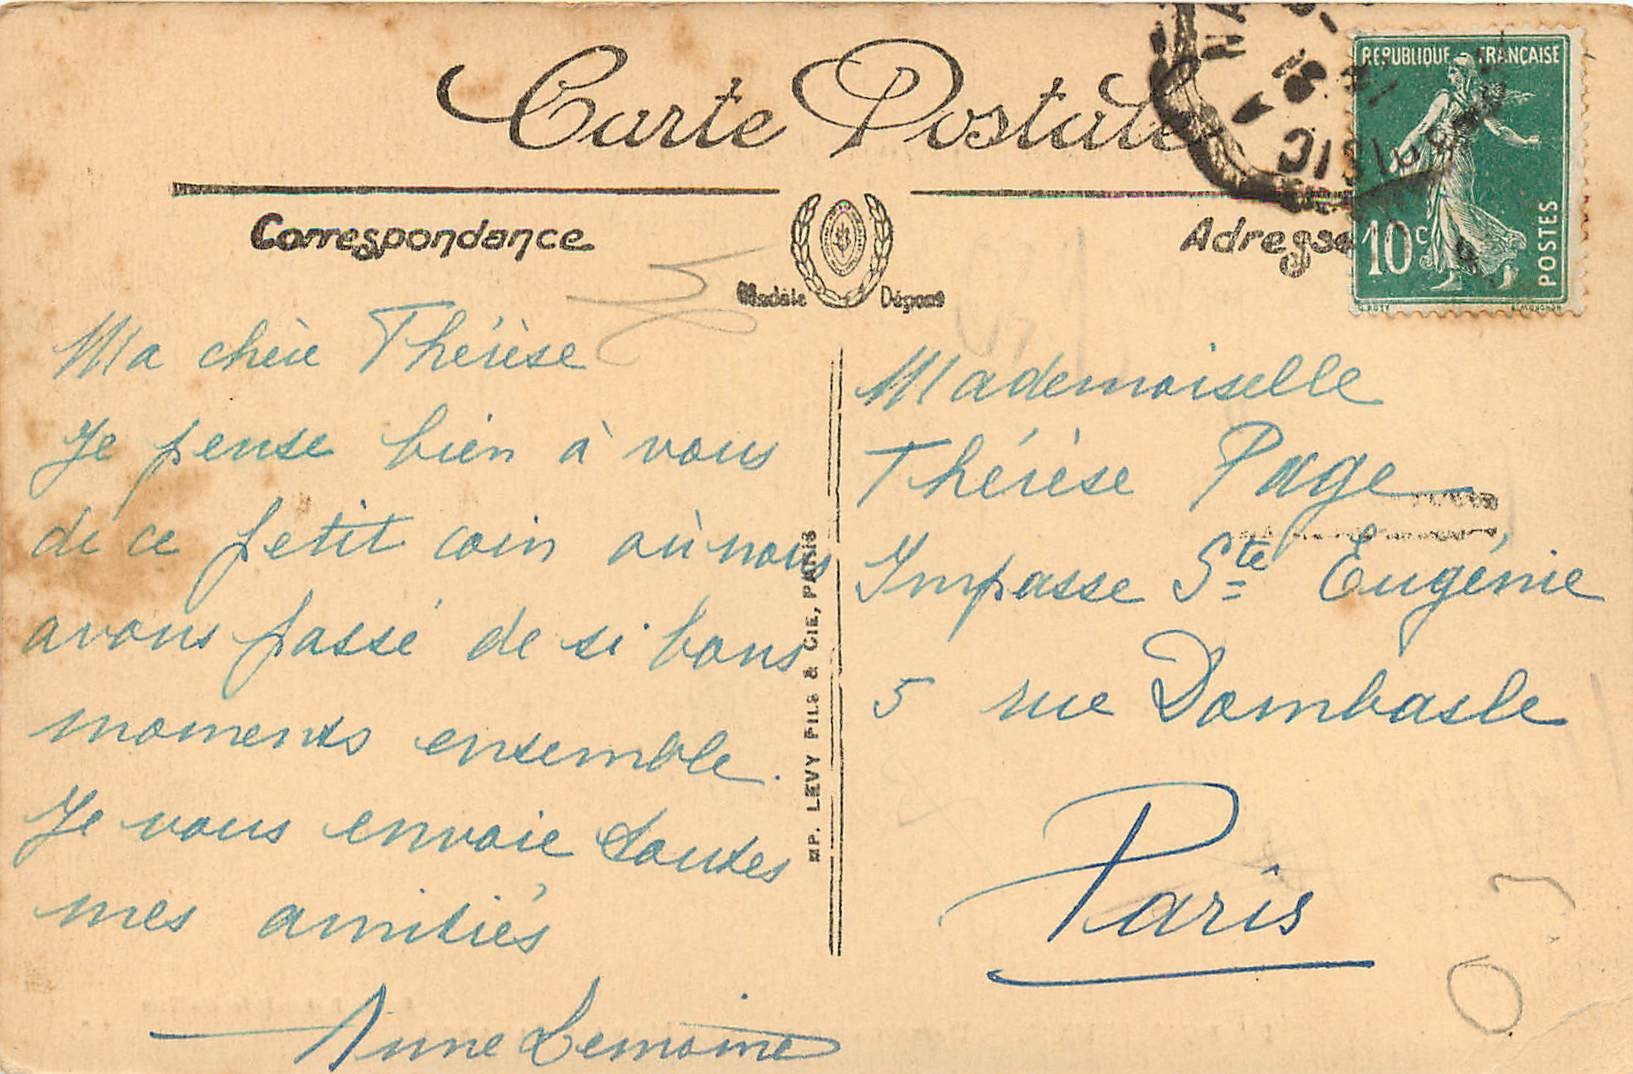 Carte Postale
Correspondance
Adresse
Modèle Déposé
REPUBLIQUE FRANÇAISE
10c
POSTES
Ma chère Thérèse
Je pense bien à vous
de ce petit coin où nous
avons passé de si bons
moments ensemble.
Je vous envoie toutes
mes amitiés
Anne Lemoine
MP. LEVY FILS & CIE, PARIS
Mademoiselle
Thérèse Page
Impasse Ste Eugénie
5 rue Dombasle
Paris